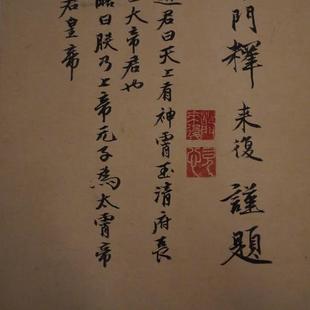 門釋来復謹題
君曰天上有神霄玉清府長
大帝君也
曰朕乃上帝元子為太霄帝
君皇帝